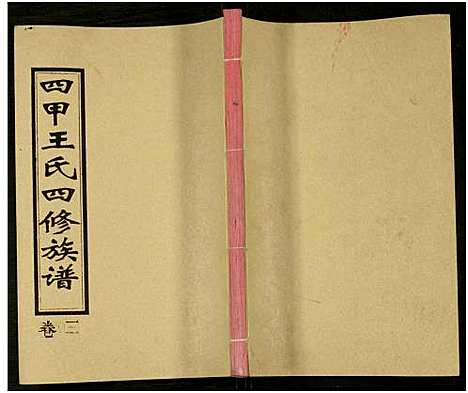 四甲王氏四修族谱
卷